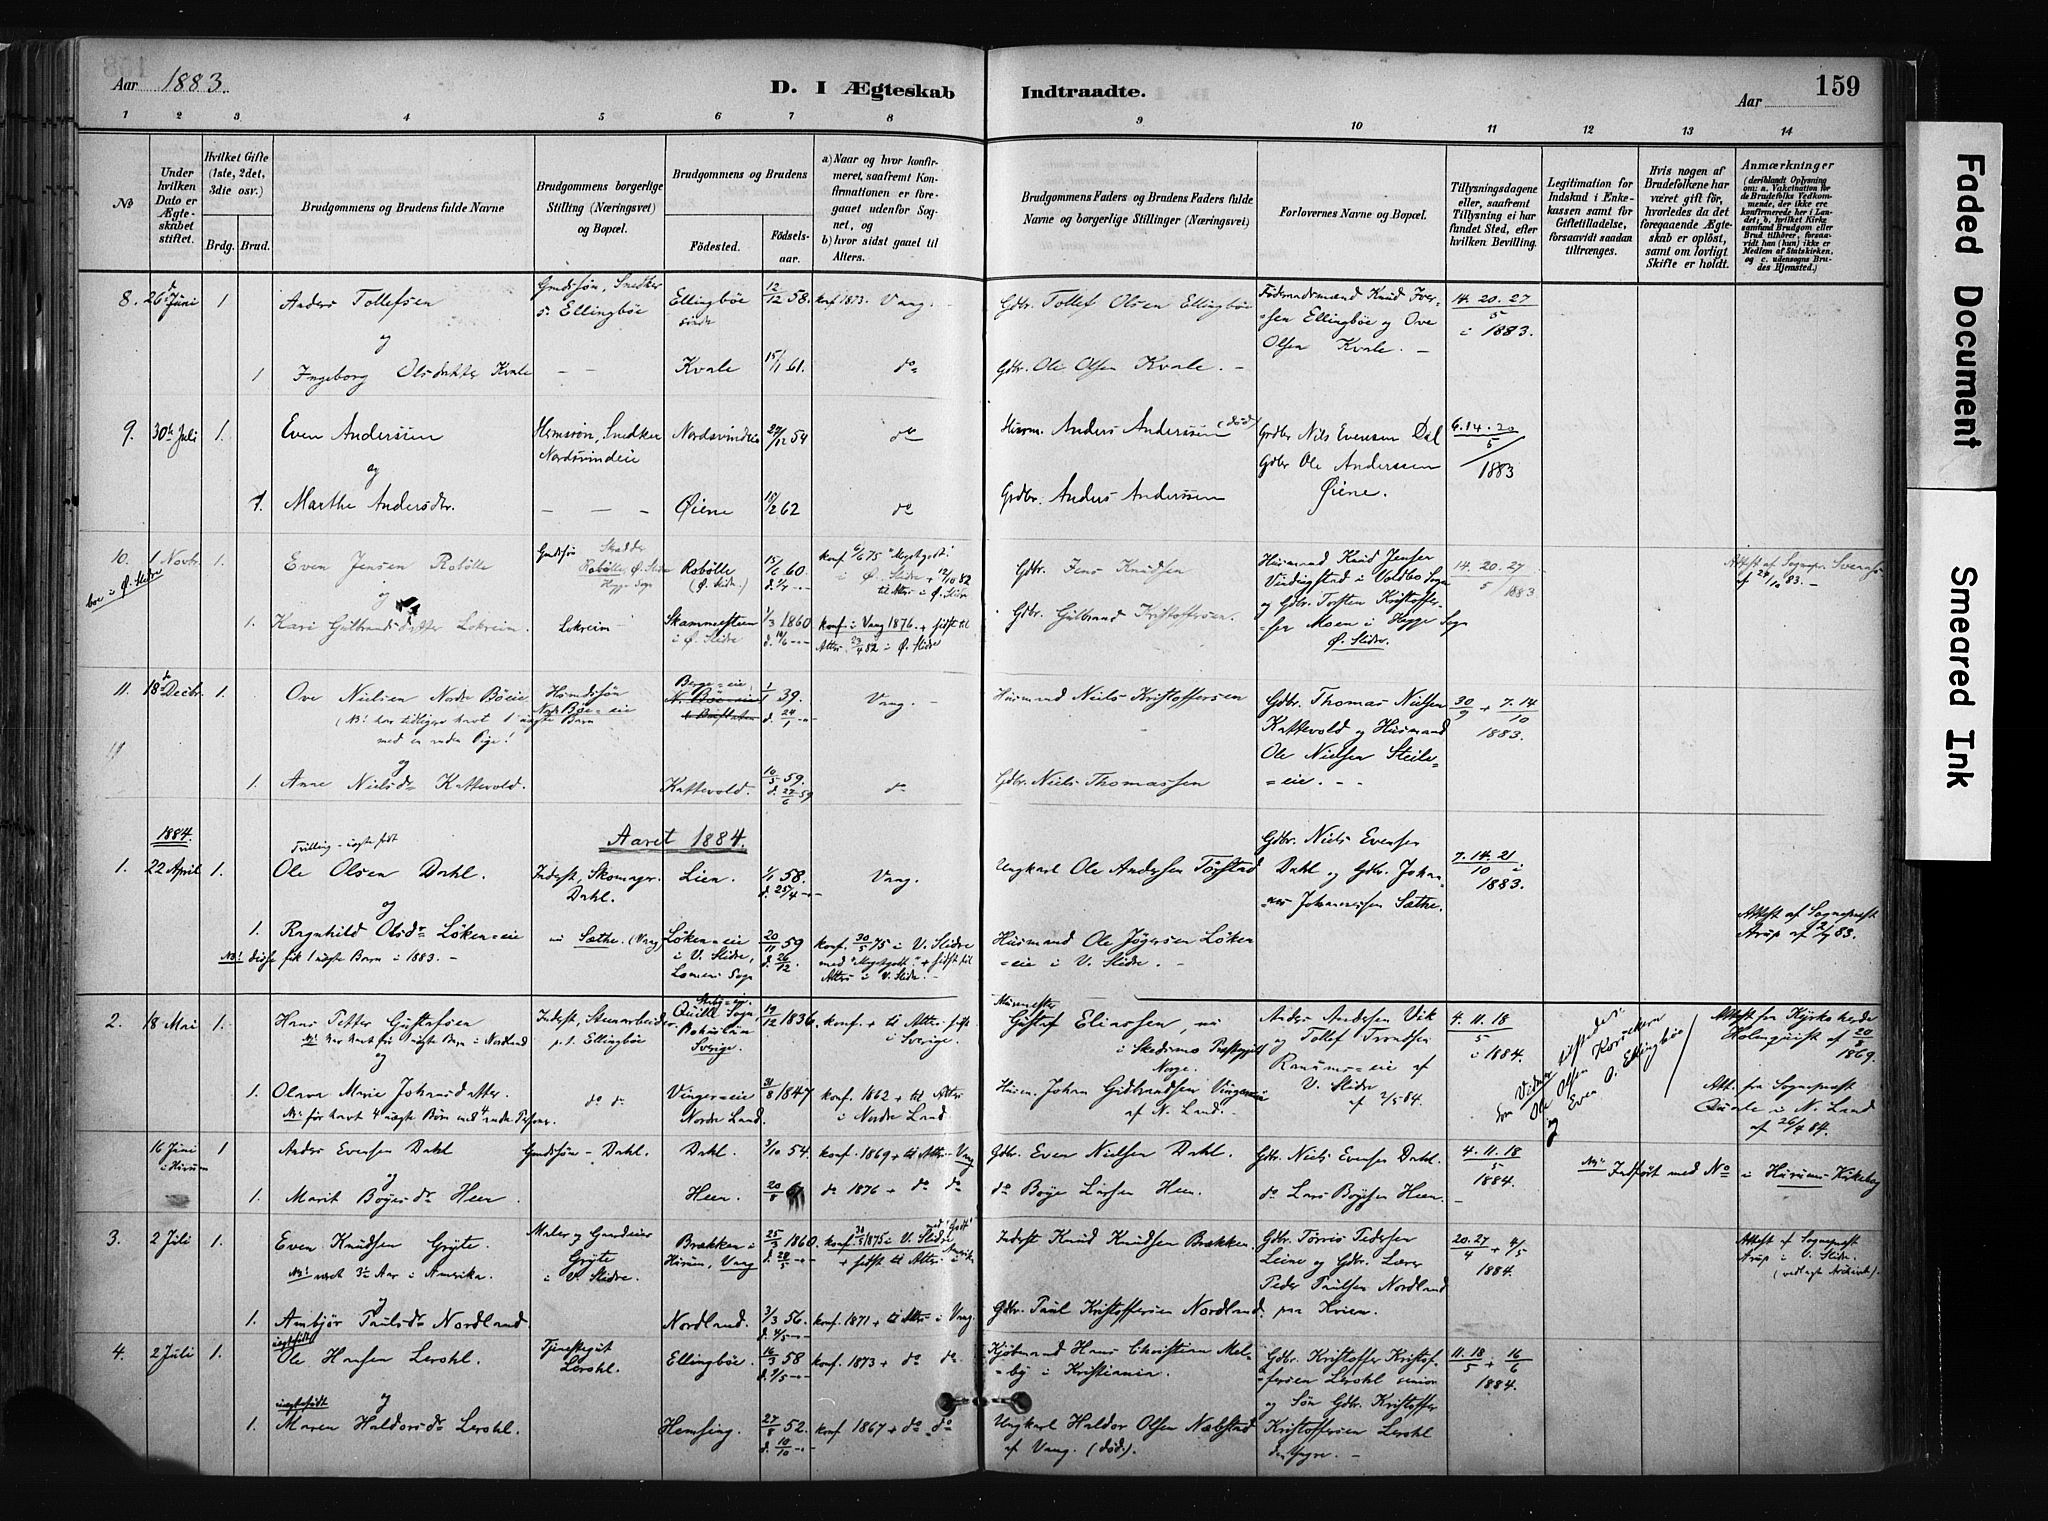 Aar 1883.
D. I Ægteskab Indtraadte.
159
Aar
1 2 3 4 5 6 7 8 9 10 11 12 13 14
№
Under hvilken Dato er Ægteskabet stiftet.
Hvilket Gifte (1ste, 2det, 3die osv.)
Brdg. Brud.
Brudgommens og Brudens fulde Navne
Brudgommens borgerlige Stilling (Næringsvei) og Bopæl.
Brudgommens og Brudens
Födested.
Födselsaar.
a) Naar og hvor konfirmeret, saafremt Konfirmationen er foregaaet udenfor Sognet, og
b) hvor sidst gaaet til Alters.
Brudgommens Faders og Brudens Faders fulde Navne og borgerlige Stillinger (Næringsvei)
Forlovernes Navne og Bopæl.
Tillysningsdagene eller, saafremt Tillysning ei har fundet Sted, efter hvilken Bevilling.
Legitimation for Indskud i Enkekassen samt for Giftetilladelse, forsaavidt saadan tiltrænges.
Hvis nogen af Brudefolkene har været gift för, hvorledes da det foregaaende Ægteskab er oplöst, samt om lovligt Skifte er holdt.
Anmærkninger
(deriblandt Oplysning om: a. Vakcination for de Brudefolks Vedkommende, der ikke ere konfirmerede her i Landet; b. hvilket Kirkesamfund Brudgom eller Brud tilhörer, forsaavidt han (hun) ikke er Medlem af Statskirken, og c. udensogns Brudes Hjemsted.)
8. 26d Juni 1 Anders Tollefsen Gmdssön, Snedker s. Ellingböe Ellingböe söndre 12/12 58. konf 1873. Vang. Gdbr. Tollef Olsen Ellingböe Föderaadsmænd Knud Iversen Ellingböe og Ove Olsen Kvale. 14. 20. 27/5 i 1883.
og
1 Ingeborg Olsdatter Kvale — — Kvale 15/1 61. do Gdbr. Ole Olsen Kvale. —
9. 30te Juli 1. Even Anderssen Hmssön, Snedker Nordsvindeie Nordsvindeie 29/12 54 do Husm. Anders Anderssen (död) Grdbr Nils Evensen Dal Gdbr Ole Anderssen Øiene. 6. 14. 20/5 1883
og
1. Marthe Andersdtr. — — — Øiene 19/2 62 do Grdbr. Anders Anderssen
10. 1 Novbr. boe i Ø. Slidre 1. Even Jensen Robölle Gmdssön Robölle, Ø. Slidre Hegge Sogn Robölle (Ø. Slidre.) 15/6 60 konf 6/6 75 "Megetgodt" i Ø. Slidre + 12/10 82 til Alters i Ø. Slidre Gdbr. Jens Knudsen Husmand Knud Jensen Vindingstad i Voldbo Sogn og Gdbr. Torsten Kristoffersen Moen i Hegge Sogn Ø. Slidre. 14. 20. 27/5 1883 Attest af Sognepr. af 24/10 83.
og
1. Kari Gulbrandsdatter Lokreim. Lokreim Skammestein i Ø. Slidre 1/3 1860 konf i Vang 1876. + sidst til Alters 23/4 82 i Ø. Slidre Gdbr. Gulbrand Kristoffersen.
11. 18de Decbr. 1. Ove Nielsen Nordre Böeie Husmdssön Nordre Böe-eie Berge-eie 1/1 39. Vang. Husmand Niels Kristoffersen Gdbr. Thomas Nielsen Kattevold og Husmand Ole Nielsen Steile-eie. 30/9 + 7. 14/10 1883.
(NB! har tidligere havt 1 uægte Barn med en anden Pige!
og
1. Anne Nielsdr Kattevold. Kattevold. 10/5 59. d. 27/6 59 do Gdbr. Niels Thomassen
1884.
Aaret 1884.
1. 22 April 1. Tvilling - uægte födt Ole Olsen Dahl. Inderst, Skomager. Dahl. Lien. 1/1 58. d. 25/4 Vang. Ungkarl Ole Andersen Törstad Gdbr. Niels Evensen Dahl og Gdbr. Johannes Johannessen Sæthe. 7. 14. 21/10 i 1883.
og
1. Ragnhild Olsdr Löken-eie Sæthe. (Vang) Löken-eie i V. Slidre, Lomen Sogn 20/11 59 d. 26/12 konf. 30/5 75 i V. Slidre med "Megetgodt" + sidst til Alters i V. Slidre. Husmand Ole Jögersen Löken-eie i V. Slidre. Attest af Sognepræst Arup af 2/7 83.
NB! disse fik 1 uægte Barn i 1883.
2. 18 Mai 1. Hans Petter Gustafsen Inderst, Stenarbeider p. t. Ellingböe Quille Sogn, Bohuslän Sverige. 19/12 1836. konf. + til Alters sidst i Sverige. Murmester Gustaf Eliassen, nu i Skedsmo Præstegjeld Norge. Anders Andersen Vik og Tollef Trondsen Ranums-eie af V. Slidre af 2/5 84. 4. 11. 18/5 i 1884. Som Vidner tilstede: Ole Olsen Korsekern og Even O. Ellingböe Attest fra Kyrkoherde Holmquist af 20/8 1869.
NB! har havt för 1 uægte Barn i Nordland
og
1. Olava Marie Johansdatter do do Vinger-eie Nordre Land. 31/8 1847 konf. 1862 + til Alters i Nordre Land Husm. Johan Gulbrandsen Vingereie af N. Land. Att. fra Sognepræst Quale i N. Land af 26/4 84.
NB! för havt 4 uægte Börn med 4 andre Personer
16 Juni i Hurum 1 Anders Evensen Dahl Gmdssön - Dahl. Dahl. 3/10 54. konf. 1869 + til Alters Vang Gdbr. Even Nielsen Dahl. Gdbr. Niels Evensen Dahl. 4. 11. 18/5 1884. NB! Indført med No i Hurums Kirkebog
og
1. Marit Boyesdr Heen Heen. 20/8 do 1876 + do do do Boye Larsen Heen. do Lars Boysen Heen.
3. 2 Juli 1. Even Knudsen Gryte. Maler og Gaardeier Gryte i V. Slidre. Brækken i Hurum, Vang 25/3 1860. d. 28/5 konf. 30/5 1875 i V. Slidre med "Godt" + sidst til Alters i Amerika Inderst Knud Knudsen Brækken Gdbr. Törris Pedersen Leine og Gdbr. Lærer Peder Paulsen Nordland paa Kvien. 20. 27/4 + 4/5 1884. Attest af Sognepræst Arup i V. Slidre. (vedlagt Archivet).
NB! været 3½ Aar i Amerika.
og
1. Ambjör Paulsdr Nordland. Nordland. 3/3 56. d. 4/5 konf. 1871 + til Alters i Vang Gdbr. Paul Kristoffersen Nordland.
4. 2 Juli 1. uægtefödt Ole Hansen Lerohl. Tjenestegut Lerohl. Ellingböe. 16/3 58 d. 2/5 konf. 1873 + do do. Kjöbmand Hans Christian Melby i Kristiania. Gdbr. Kristoffer Kristoffersen Lerohl senior og Sön Gdbr. Kristoffer Kristoffersen Lerohl den yngre. 11. 18/5 + 16/6 1884.
og
1. uægtefödt Maren Haldorsdr Lerohl. Hemsing. 27/8 52. d. 10/10 konf 1867 + do do Ungkarl Haldor Olsen Næbstad af Vang. (död).
Faded Document
Smeared Ink